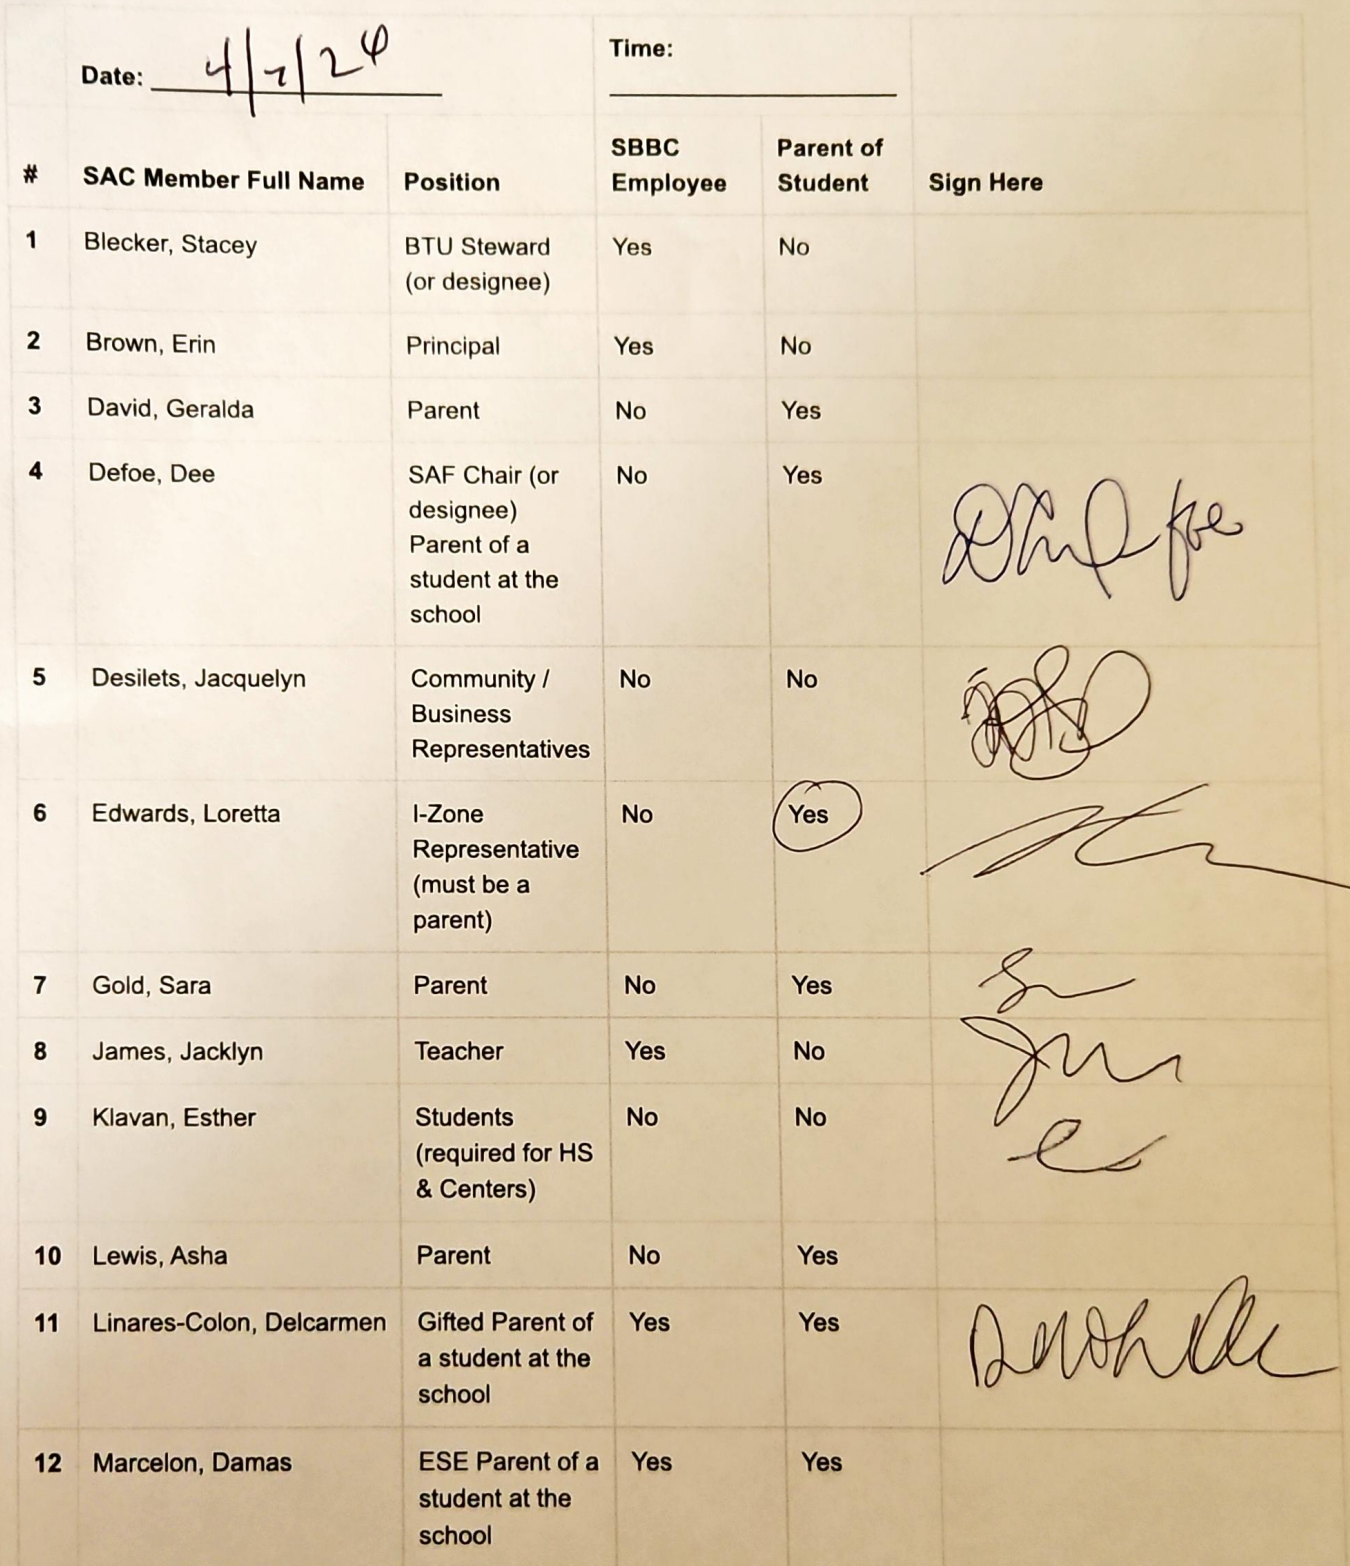 Date: 4/2/24 Time:
# SAC Member Full Name Position SBBC Employee Parent of Student Sign Here
1 Blecker, Stacey BTU Steward Yes No
(or designee)
2 Brown, Erin Principal Yes No
3 David, Geralda Parent No Yes
4 Defoe, Dee SAF Chair (or No Yes
designee)
Parent of a
student at the
school
5 Desilets, Jacquelyn Community / No No
Business
Representatives
6 Edwards, Loretta I-Zone No Yes
Representative
(must be a
parent)
7 Gold, Sara Parent No Yes
8 James, Jacklyn Teacher Yes No
9 Klavan, Esther Students No No
(required for HS
& Centers)
10 Lewis, Asha Parent No Yes
11 Linares-Colon, Delcarmen Gifted Parent of Yes Yes
a student at the
school
12 Marcelon, Damas ESE Parent of a Yes Yes
student at the
school